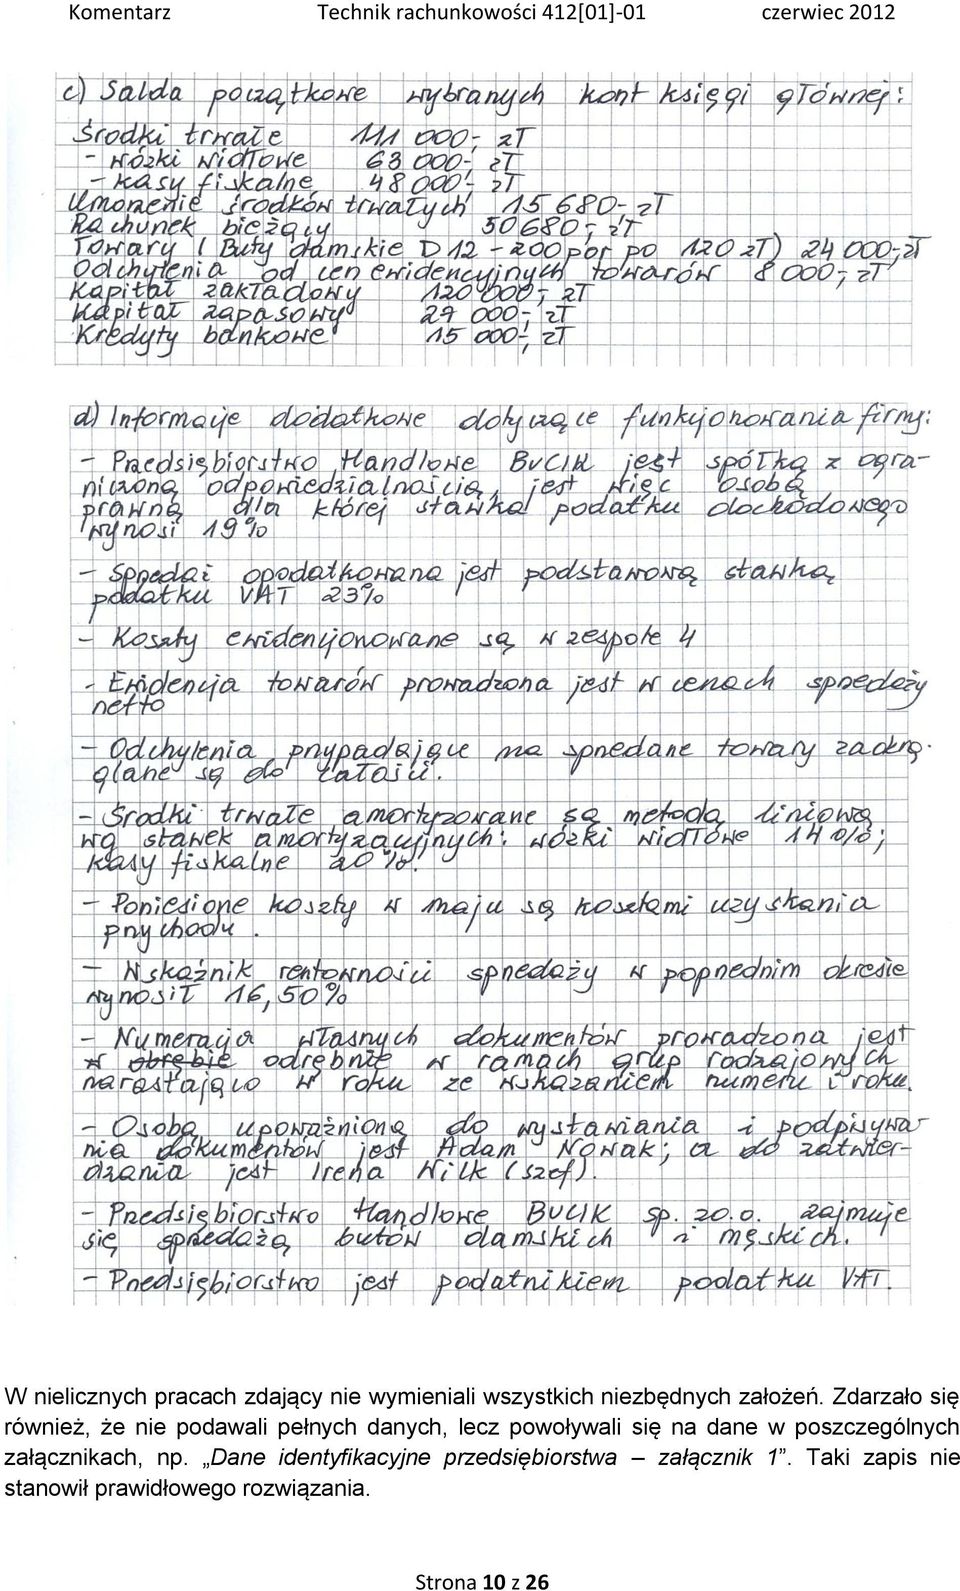 Komentarz Technik rachunkowości 412[01]-01 czerwiec 2012
c) Salda początkowe wybranych kont księgi głównej:
Środki trwałe 111 000,- zł
- wózki widłowe 63 000,- zł
- kasy fiskalne 48 000,- zł
Umorzenie środków trwałych 15 680,- zł
Rachunek bieżący 50 680,- zł
Towary (Buty damskie D12 - 200 por po 120 zł) 24 000,- zł
Odchylenia od cen ewidencyjnych towarów 8 000,- zł
Kapitał zakładowy 120 000,- zł
Kapitał zapasowy 27 000,- zł
Kredyty bankowe 15 000,- zł
d) Informacje dodatkowe dotyczące funkcjonowania firmy:
- Przedsiębiorstwo Handlowe BUCIK jest spółką z ogra-
niczoną odpowiedzialnością, jest więc osobą
prawną dla której stawka podatku dochodowego
wynosi 19%
- Sprzedaż opodatkowana jest podstawową stawką
podatku VAT 23%
- Koszty ewidencjonowane są w zespole 4
- Ewidencja towarów prowadzona jest w cenach sprzedaży
netto
- Odchylenia przypadające na sprzedane towary zaokrą-
glane są do całości.
- Środki trwałe amortyzowane są metodą liniową
wg stawek amortyzacyjnych: wózki widłowe 14%;
kasy fiskalne 20%.
- Poniesione koszty w maju są kosztami uzyskania
przychodu.
- Wskaźnik rentowności sprzedaży w poprzednim okresie
wynosił 16,50%
- Numeracja własnych dokumentów prowadzona jest
w obrębie odrębnie w ramach grup rodzajowych
narastająco w roku ze wskazaniem numeru i roku.
- Osobą upoważnioną do wystawiania i podpisywa-
nia dokumentów jest Adam Nowak; a do zatwier-
dzania jest Irena Wilk (szef).
- Przedsiębiorstwo Handlowe BUCIK sp. zo.o. zajmuje
się sprzedażą butów damskich i męskich.
- Przedsiębiorstwo jest podatnikiem podatku VAT.
W nielicznych pracach zdający nie wymieniali wszystkich niezbędnych założeń. Zdarzało się
również, że nie podawali pełnych danych, lecz powoływali się na dane w poszczególnych
załącznikach, np. „Dane identyfikacyjne przedsiębiorstwa – załącznik 1”. Taki zapis nie
stanowił prawidłowego rozwiązania.
Strona 10 z 26